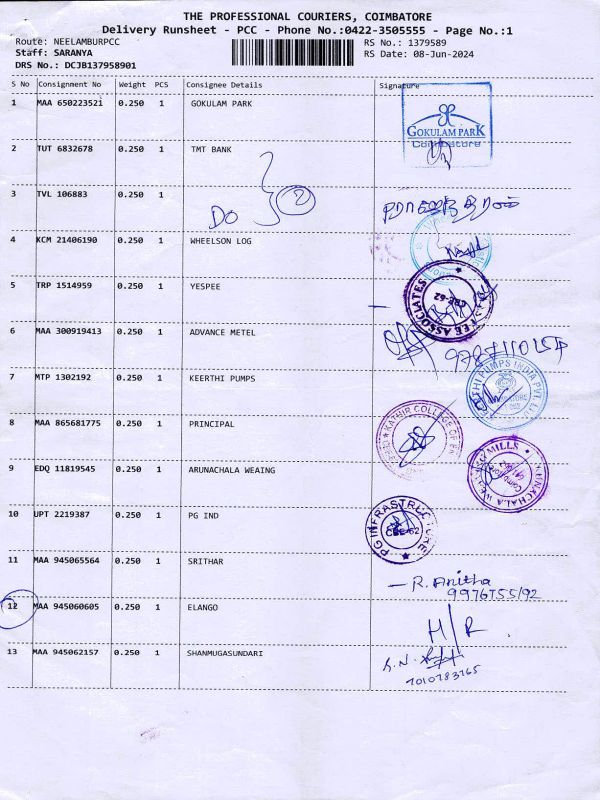 THE PROFESSIONAL COURIERS, COIMBATORE
Delivery Runsheet - PCC - Phone No.:0422-3505555 - Page No.:1
Route: NEELAMBURPCC
RS No.: 1379589
Staff: SARANYA
RS Date: 08-Jun-2024
DRS No.: DCJB137958901
S No Consignment No Weight PCS Consignee Details Signature
1 MAA 650223521 0.250 1 GOKULAM PARK
GOKULAM PARK
Coimbatore
2 TUT 6832678 0.250 1 TMT BANK
3 TVL 106883 0.250 1
DO } 2
4 KCM 21406190 0.250 1 WHEELSON LOG
5 TRP 1514959 0.250 1 YESPEE
ASSOCIATES
CBE-62
6 MAA 300919413 0.250 1 ADVANCE METEL
7 MTP 1302192 0.250 1 KEERTHI PUMPS
PUMPS INDIA PVT. LTD.
8 MAA 865681775 0.250 1 PRINCIPAL
KATHIR COLLEGE OF EN
9 EDQ 11819545 0.250 1 ARUNACHALA WEAING
MILLS
10 UPT 2219387 0.250 1 PG IND
PG INFRASTRUCTURE
CBE-62
11 MAA 945065564 0.250 1 SRITHAR
- R. Anitha
12 MAA 945060605 0.250 1 ELANGO
H/R
13 MAA 945062157 0.250 1 SHANMUGASUNDARI
S.N.
7010783765